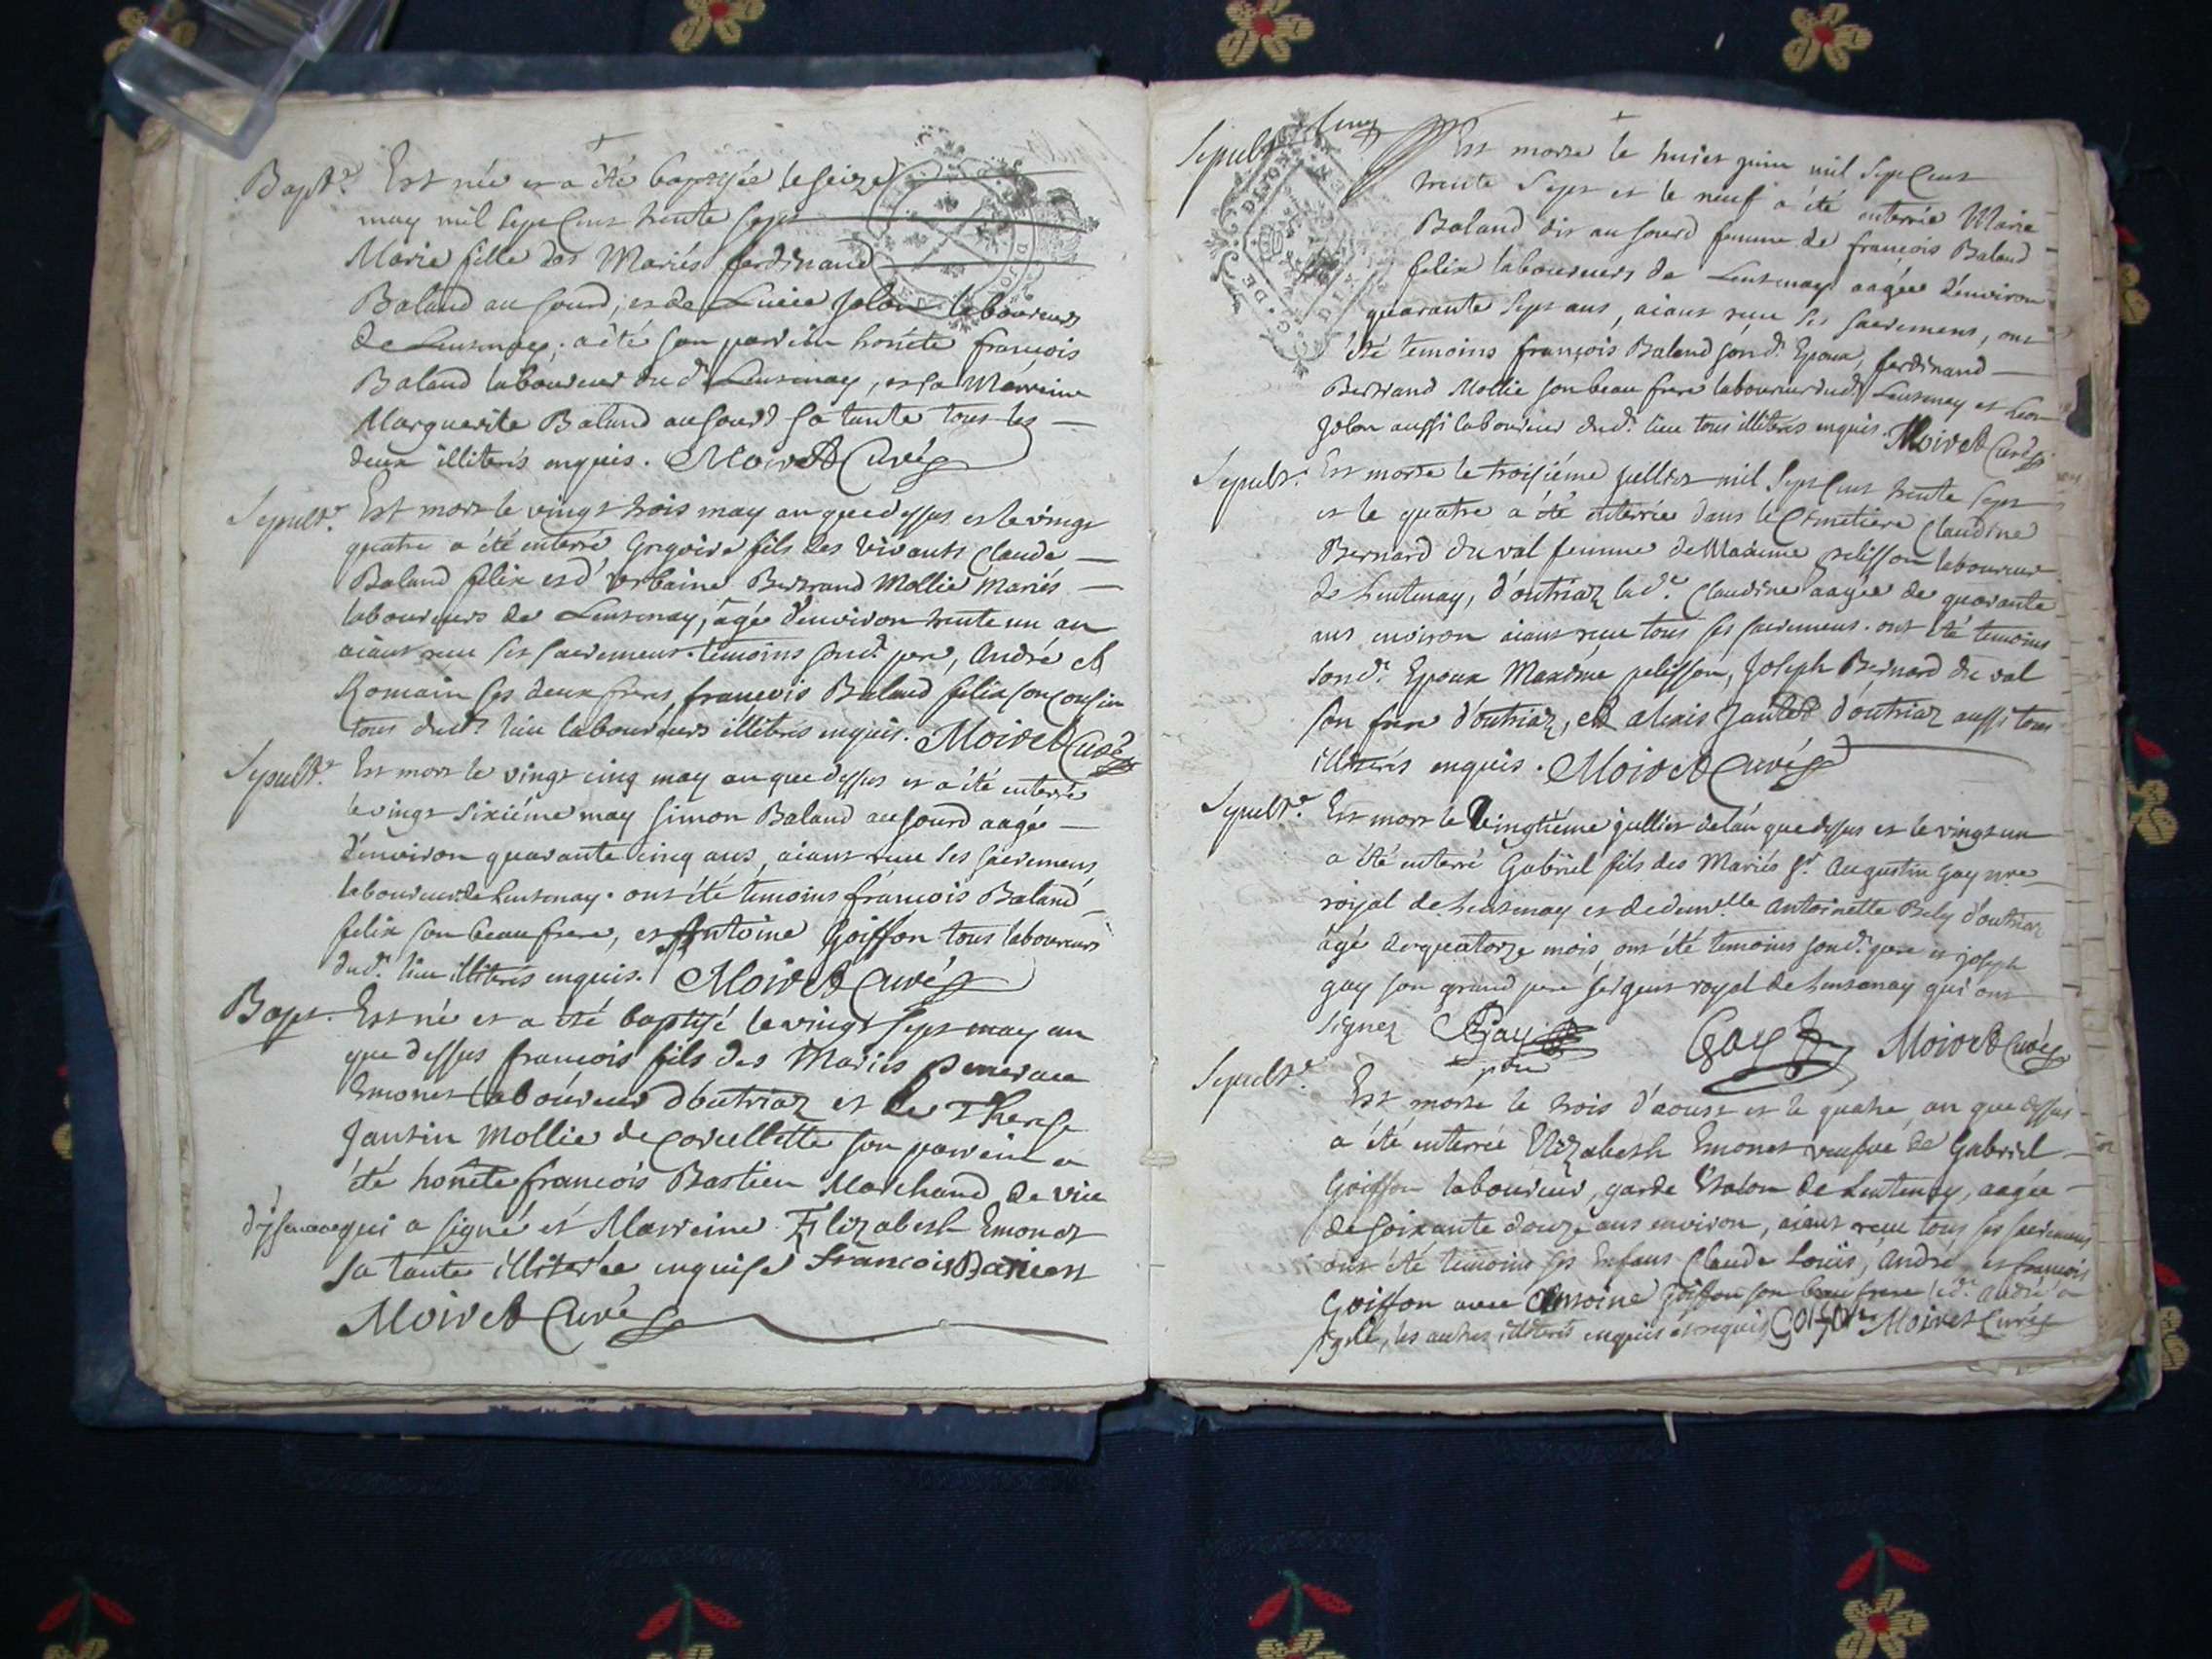 Bapt.e Est née et a été baptisée le seize
may mil sept cens trente sept
Marie fille des Mariés ferdinand
Baland au sourd, et de Lucie Jolon laboureurs
de Lentenay; a été son parrein honête françois
Baland laboureur du d. Lentenay, et sa Marreine
Marguerite Baland au sourd sa tante tous les
deux illiterés enquis. Moiret Curé
Sepult.e Est mort le vingt trois may an que dessus et le vingt
quatre a été enterré Grigoire fils des vivants Claude
Baland felix et d'Urbaine Bertrand Mollie Mariés
laboureurs de Lentenay, âgé d'environ trente un an
aiant receu ses sacremens. temoins son d. pere, André et
Romain ses deux freres, françois Baland felix son cousin
tous dud. lieu laboureurs illiterés enquis. Moiret Curé
Sepult.e Est mort le vingt cinq may an que dessus et a été enterré
le vingt sixiéme may Simon Baland au sourd aagé
d'environ quarante cinq ans, aiant receu ses sacremens,
laboureur de Lentenay. ont été temoins françois Baland
felix son beau frere, et Antoine Goiffon tous laboureurs
dud. lieu illiterés enquis. Moiret Curé
Bapt. Est né et a été baptisé le vingt sept may an
que dessus françois fils des Mariés
Emonet laboureur d'Outriaz et de Therese
Jantin Mollie de Corcellette son parrein a
été honête françois Bastien Marchand de vieu
qui a signé et Marreine Elizabeth Emonet
sa tante illiterée enquise francois Bastien
Moiret Curé
Sepult.e Est morte le huict juin mil sept cens
trente sept et le neuf a été enterrée Marie
Baland dit au sourd femme de françois Baland
felix laboureurs de Lentenay aagée d'environ
quarante sept ans, aiant receu ses sacremens, ont
été temoins françois Baland son d. Epoux, ferdinand
Bertrand Mollie son beau frere laboureur dud. Lentenay et Leon
Jolon aussi laboureur dud. lieu tous illiterés enquis. Moiret Curé
Sepult.e Est morte le troisiéme juillet mil sept cens trente sept
et le quatre a été enterrée dans le Cimetiere Claudine
Bernard du val femme de Maxime pelisson laboureur
de Lentenay, d'outriaz lad.e Claudine aagée de quarante
ans environ aiant receu tous ses sacremens. ont été temoins
son d. Epoux Maxime pelisson, Joseph Bernard du val
son frere d'outriaz, et alexis d'outriaz aussi tous
illiterés enquis. Moiret Curé
Sepult.e Est mort le Vingtiéme juillet de l'an que dessus et le vingt un
a été enterré Gabriel fils des Mariés Sr. Augustin Gay nre
royal de Lentenay et de demlle Antoinette Bely d'outriaz
âgé de quatorze mois, ont été temoins son d. pere et joseph
gay son grand pere sergent royal de Lentenay qui ont
signez Gay Gay Moiret Curé
Sepult.e Est morte le trois d'aoust et le quatre an que dessus
a été enterrée Elizabeth Emonet veufve de Gabriel
Goiffon laboureur, garde Etalon de Lentenay, aagée
de soixante douze ans environ, aiant receu tous ses sacremens
ont été temoins ses Enfans Claude Louis, André, et francois
Goiffon avec Antoine Goiffon son beau frere led. André a
signé, les autres illiterés enquis et requis Goifon Moiret Curé